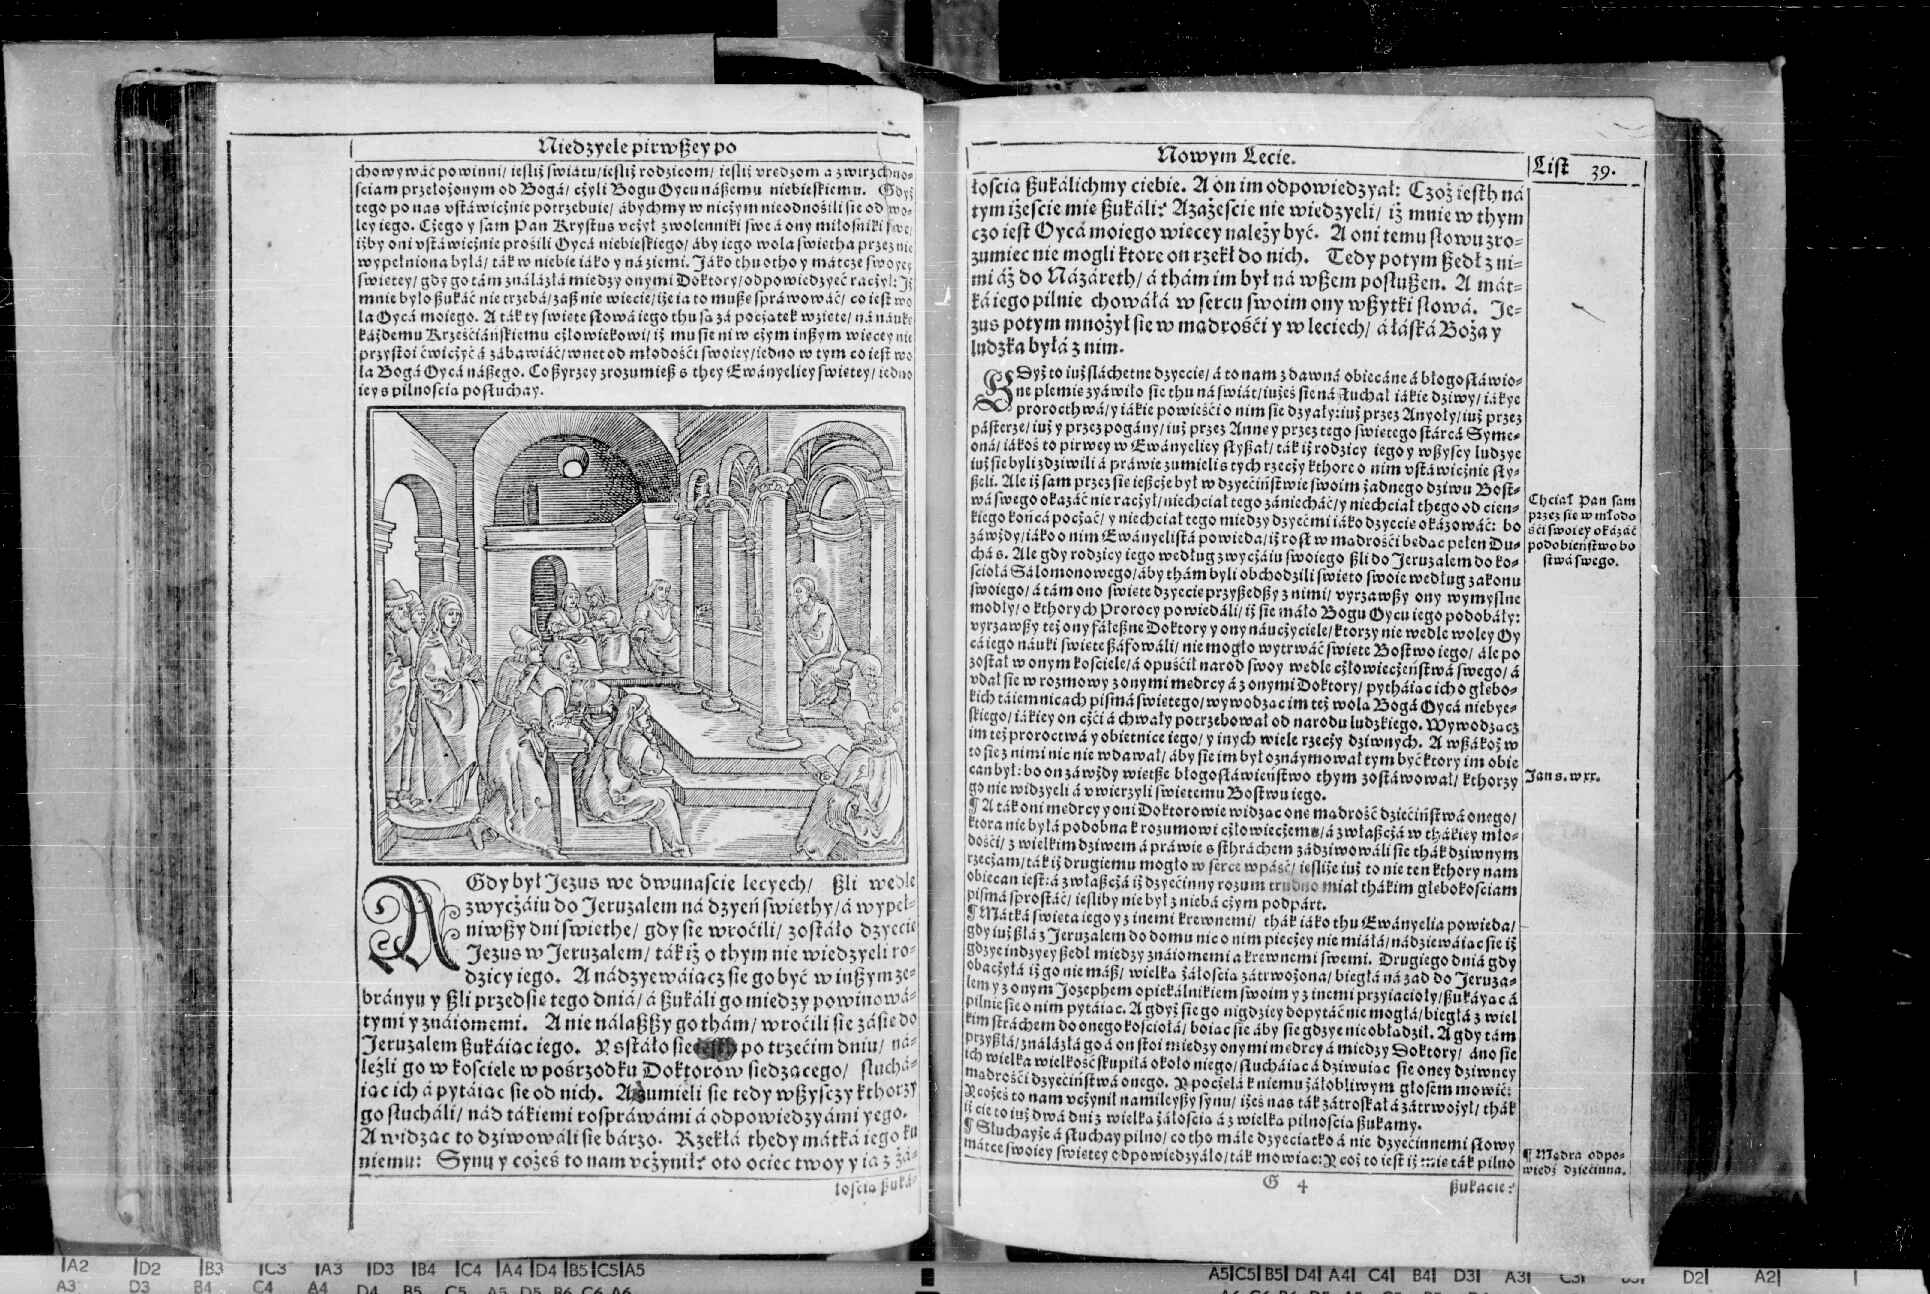 Niedzyele pirwßey po
chowywáć powinni/ iesliż swiátu/iesliż rodzicom/ iesliż vrzedzom a zwirzchno-
sciam przelożonym od Bogá/ cżyli Bogu Oycu nászemu niebieskiemu. Gdyż
tego po nas vstáwicżnie potrzebuie/ ábychmy w nicżym nieodnośili sie od wo-
ley iego. Cżego y sam Pan Krystus vcżył zwolenniki swe á ony miłosniki swe/
iżby oni vstáwicżnie prosili Oycá niebieskiego/ áby iego wola swietha przez nie
wypełniona byłá/ ták w niebie iáko y ná ziemi. Jáko thu otho y mátcze swoyey
swietey/ gdy go tám ználázłá miedzy onymi Doktory/odpowiedzyeć racżył: Iż
mnie było ßukáć nie trzebá/ zaß nie wiecie/iże ia to muße spráwowáć/ co iest wo
la Oycá moiego. A ták ty swiete słowá iego thu są zá pocżatek wziete/ ná náuke
káżdemu Krześciáńskiemu cżłowiekowi/ iż mu sie ni w cżym inßym wiecey nie
przystoi ćwicżyć á zábáwiáć/wnet od młodośći swoiey/iedno w tym co iest wo
la Bogá Oycá nászego. Co ßyrzey zrozumieß s they Ewányeliey swietey/ iedno
iey s pilnoscia posłuchay.
AGdy był Jezus we dwunascie lecyech/ ßli wedle
zwycżáiu do Jeruzalem ná dzyeń swiethy/ á wypeł-
niwßy dni swiethe/ gdy sie wroćili/ zostáło dzyecie
Jezus w Jeruzalem/ ták iż o thym nie wiedzyeli ro-
dzicy iego. A nádzyewáiącz sie go być w inßym ze-
brányu y ßli przedsie tego dniá/ á ßukáli go miedzy powinowá-
tymi y znáiomemi. A nie náłaßßy go thám/ wroćili sie zásie do
Jeruzalem ßukáiac iego. Y sstáło sie po trzećim dniu/ ná-
leźli go w kosciele w pośrzodku Doktorow siedzacego/ słuchá-
iac ich á pytáiac sie od nich. A zumieli sie tedy wßysczy kthorzy
go słucháli/ nád tákiemi rospráwámi á odpowiedzyámi yego.
A widzac to dziwowáli sie bárzo. Rzekłá thedy mátká iego ku
niemu: Synu y cożeś to nam vcżynił? oto ociec twoy y ia z żá-
łoscia ßuká-
Nowym Lecie.
List 39.
łoscia ßukálichmy ciebie. A on im odpowiedzyał: Czoż iesth ná
tym iżescie mie ßukáli? Azażescie nie wiedzyeli/ iż mnie w thym
czo iest Oycá moiego wiecey należy być. A oni temu słowu zro-
zumiec nie mogli ktore on rzekł do nich. Tedy potym ßedł z ni-
mi áż do Názáreth/ á thám im był ná wßem posłußen. A mát-
ká iego pilnie chowáłá w sercu swoim ony wßytki słowá. Je-
zus potym mnożył sie w mądrośći y w leciech/ á łáská Boża y
ludzka byłá z nim.
GDyż to iuż sláchetne dzyecie/ á to nam z dawná obiecáne á błogosłáwio-
ne plemie zyáwiło sie thu ná swiát/ iużeś sie nasłuchał iákie dziwy/ iákye
prorocthwá/ y iákie powieśći o nim sie dzyały: iuż przez Anyoły/ iuż przez
pásterze/ iuż y przez pogány/ iuż przez Anne y przez tego swietego stárcá Syme-
oná/ iákoś to pirwey w Ewányeliey słyßał/ ták iż rodzicy iego y wßyscy ludzye
iuż sie byli zdziwili á práwie zumieli s tych rzecży kthore o nim vstáwicżnie sły-
ßeli. Ale iż sam przez sie ießcże był w dzyećiństwie swoim żadnego dziwu Bost-
wá swego okazáć nie racżył/ niechciał tego zániecháć/ y niechciał thego od cien-
kiego końcá pocżąć/ y niechciał tego miedzy dzyećmi iáko dzyecie okázowáć: bo
záwżdy/ iáko o nim Ewányelistá powieda/ iż rosł w mądrośći bedac pełen Du-
chá s. Ale gdy rodzicy iego według zwycżáiu swoiego ßli do Jeruzalem do ko-
sciołá Sálomonowego/ áby thám byli obchodzili swieto swoie według zakonu
swoiego/ á tám ono swiete dzyecie przyßedßy z nimi/ vyrzawßy ony wymyslne
modły/ o kthorych Prorocy powiedáli/ iż sie máło Bogu Oycu iego podobáły:
vyrzawßy też ony fáleßne Doktory y ony náucżyciele/ ktorzy nie wedle woley Oy
cá iego náuki swiete ßáfowáli/ nie mogło wytrwáć swiete Bostwo iego/ ále po
został w onym kosciele/ á opuśćił narod swoy wedle cżłowiecżeństwá swego/ á
vdał sie w rozmowy z onymi medrcy á z onymi Doktory/ pytháiac ich o głebo-
kich táiemnicach pismá swietego/ wywodzac im też wola Bogá Oycá niebye-
skiego/ iákiey on cżći á chwały potrzebował od narodu ludzkiego. Wywodzącz
im też proroctwá y obietnice iego/ y inych wiele rzecży dziwnych. A wßákoż w
to sie z nimi nic nie wdawał/ áby sie im był oznáymował tym być ktory im obie
can był: bo on záwżdy wietße błogosłáwieństwo thym zostáwował/ kthorzy
go nie widzyeli á vwierzyli swietemu Bostwu iego.
¶ A ták oni medrcy y oni Doktorowie widzac one mądrość dziećiństwá onego/
ktora nie byłá podobna k rozumowi cżłowiecżemu/ á zwłaßcżá w thákiey mło-
dośći/ z wielkim dziwem á práwie s sthráchem zádziwowáli sie thák dziwnym
rzecżam/ ták iż drugiemu mogło w serce wpáść/ iesliże iuż to nie ten kthory nam
obiecan iest: á zwłaßcżá iż dzyećinny rozum trudno miał thákim głebokosciam
pismá sprostáć/ iesliby nie był z niebá cżym podpárt.
¶ Mátká swieta iego y z inemi krewnemi/ thák iáko thu Ewányelia powieda/
gdy iuż ßłá z Jeruzalem do domu nic o nim piecżey nie miáłá/ nádziewáiac sie iż
gdzye indzyey ßedł miedzy znáiomemi a krewnemi swemi. Drugiego dniá gdy
obacżyłá iż go nie máß/ wielka żáłoscia zátrwożona/ biegłá ná zad do Jeruza-
lem y z onym Jozephem opiekálnikiem swoim y z inemi przyiacioły/ ßukáyac á
pilnie sie o nim pytáiac. A gdyż sie go nigdziey dopytáć nie mogłá/ biegłá z wiel
kim stráchem do onego kosciołá/ boiac sie áby sie gdzye nie obładził. A gdy tám
przyßłá/ ználázłá go á on stoi miedzy onymi medrcy á miedzy Doktory/ áno sie
ich wielka wielkość skupiłá około niego/ słucháiac á dziwuiac sie oney dziwney
mądrośći dzyećiństwá onego. Y pocżełá k niemu żáłobliwym głosem mowić:
Y cożeś to nam vcżynił namileyßy synu/ iżeś nas ták zátroskał á zátrwożył/ thák
iż cie to iuż dwá dni z wielka żáłoscia á z wielka pilnoscia ßukamy.
¶ Słuchayże á słuchay pilno/ co tho máłe dzyeciatko á nie dzyećinnemi słowy
mátce swoiey swietey odpowiedzyáło/ ták mowiac: Y coż to iest iż mie ták pilno
G 4
ßukacie?
Chciał Pan sam
przez sie w młodo
śći swoiey okázáć
podobieństwo bo
stwá swego.
Jan s. w xx.
¶ Mądra odpo-
wiedź dziećinna.
A2 D2 B3 C3 A3 D3 B4 C4 A4 D4 B5 C5 A5
A3 D3 B4 C4 A4 D4 B5 C5 A5 D5 B6 C6 A6
A5 C5 B5 D4 A4 C4 B4 D3 A3 C3 B3 D2 A2